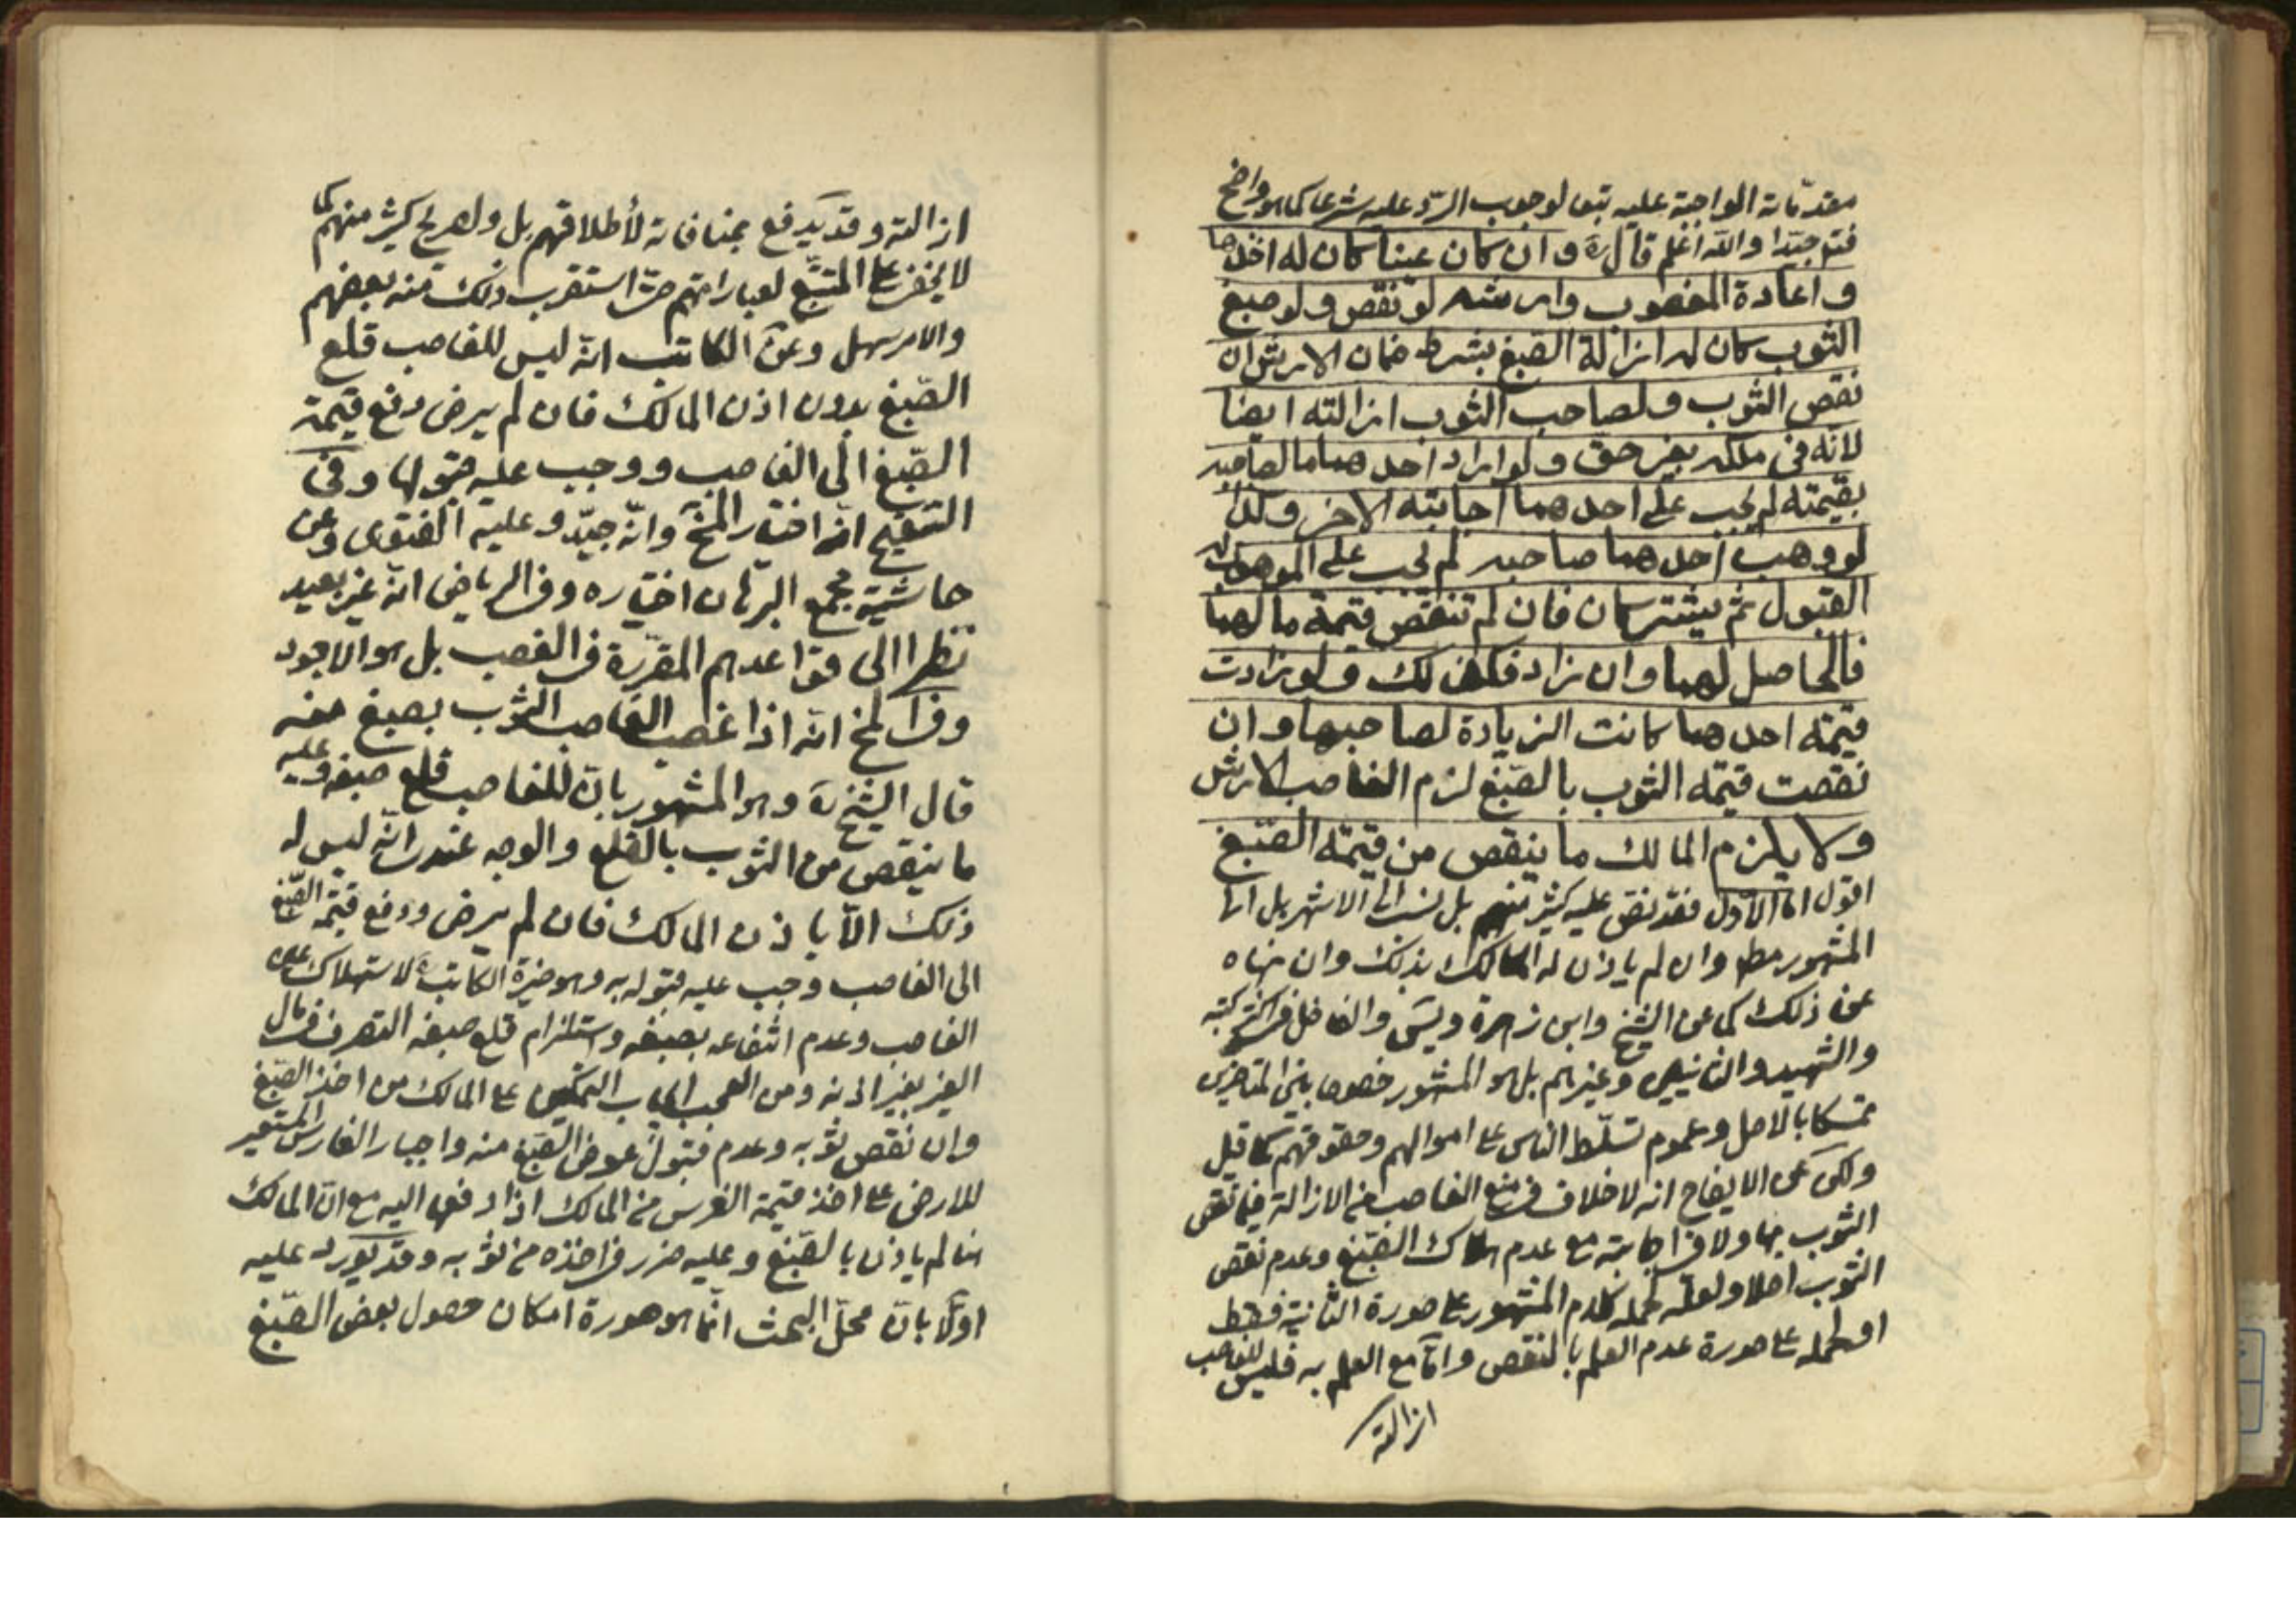 مقدّماته الواجبة عليه تبعا لوجوب الردّ عليه شرعا كما هو واضح
فتو جيّدا والله اعلم قال ره وان كان عينا كان له اخذها
واعادة المغصوب وارشه لو نقص ولو صبغ
الثوب كان له ازالة الصبغ بشرط ضمان الارش ان
نقص الثوب ولصاحب الثوب ازالته ايضا
لانه في ملكه بغير حق ولو اراد احدهما ما لصاحبه
بقيمته لم يجب على احدهما اجابته الاخر وكذا
لو وهب احدهما صاحبه لم يجب على الموهوب له
القبول ثم يشتركان فان لم تنقص قيمة مالهما
فالحاصل لهما وان زاد فكذلك ولو زادت
قيمة احدهما كانت الزيادة لصاحبها وان
نقصت قيمة الثوب بالصبغ لزم الغاصب الارش
ولا يلزم المالك ما ينقص من قيمة الصبغ
اقول اما الاوّل فقد نصّ عليه كثير منهم بل نسب الى الاشهر بل الى
المشهور مطـ وان لم ياذن له المالك بذلك وان نهاه
عن ذلك كما عن الشيخ وابن زهرة و والفاضل في اكثر كتبه
والشهيد والثانيين وغيرهم بل هو المشهور خصوصا بين المتاخرين
تمسّكا بالاصل وعموم تسلّط الناس على اموالهم وحقوقهم كما قيل
وحكى عن الايضاح انه لا خلاف في منع الغاصب من الازالة فيما نقص
الثوب بها ولا في اجابته مع عدم هلاك الصّبغ وعدم نقص
الثوب اصلا ولعلّه لحمله كلام المشهور على صورة الثانية فقط
او لحمله على صورة عدم العلم بالنقص وامّا مع العلم به فليس للغاصب
ازالته
ازالته وقد يدفع بمنافاته لأطلاقهم بل ولصريح كثير منهم كما
لا يخفى على المتتبّع لعباراتهم حتى استقرب ذلك منه بعضهم
والامر سهل وعن الكاتب انّه ليس للغاصب قلع
الصّبغ بدون اذن المالك فان لم يرض دفع قيمة
الصّبغ الى الغاصب ووجب عليه قبولها وفي
التنقيح انّه اختيار المخ وانّه جيّد وعليه الفتوى وعن
حاشية مجمع البرهان اختياره وفي الرياض انّه غير بعيد
نظرا الى قواعدهم المقرّرة في الغصب بل هو الاجود
وفي المخ انّه اذا غصب الغاصب الثوب بصبغ منه
قال الشيخ ره وهو المشهور بانّ للغاصب قلع صبغه وعليه
ما ينقص من الثوب بالقلع والوجه عندى انّه ليس له
ذلك الّا باذن المالك فان لم يرض ودفع قيمة الصّبغ
الى الغاصب وجب عليه قبوله به وهو خيرة الكاتب لاستهلاك عين
الغاصب وعدم انتفاعه بصبغه واستلزام قلع صبغه التصرف في مال
الغير بغير اذنه ومن العجب ايجاب التمكين على المالك من اخذ الصّبغ
وان نقص ثوبه وعدم قبول عوض الصّبغ منه واجبار الغارس المستعير
للارض على اخذ قيمة الغرس من المالك اذا دفعها اليه مع انّ المالك
هنا لم ياذن بالصّبغ وعليه ضرر في اخذه من ثوبه وقد يورد عليه
اوّلا بانّ محلّ البحث انّما هو صورة امكان حصول بعض الصّبغ